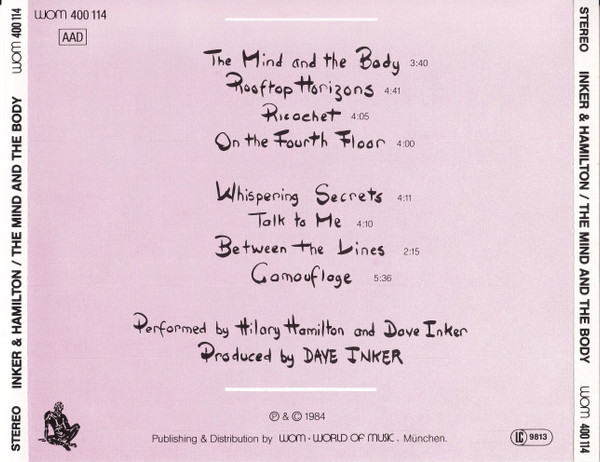 WOM 400 114
AAD
The Mind and the Body 3:40
Rooftop Horizons 4:41
Ricochet 4:05
On the Fourth Floor 4:00
Whispering Secrets 4:11
Talk to Me 4:10
Between the Lines 2:15
Camouflage 5:36
Performed by Hilary Hamilton and Dave Inker
Produced by DAVE INKER
℗ & © 1984
Publishing & Distribution by WOM · WORLD OF MUSIC, München.
LC 9813
STEREO INKER & HAMILTON / THE MIND AND THE BODY WOM 400 114
STEREO INKER & HAMILTON / THE MIND AND THE BODY WOM 400 114